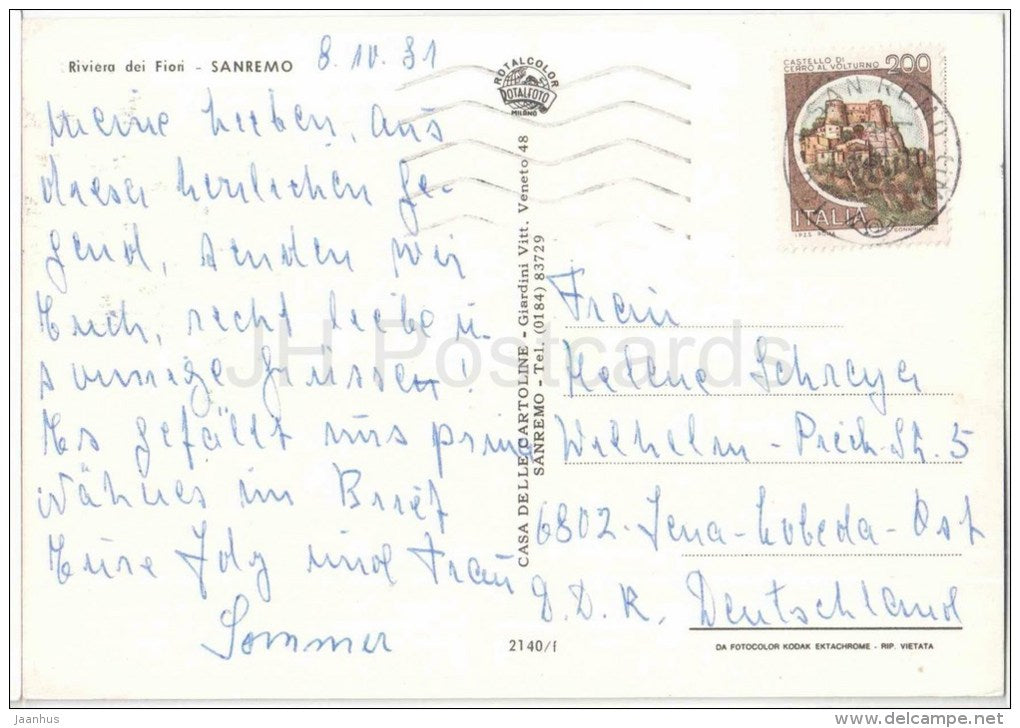 Riviera dei Fiori - SANREMO
8.10.81
Meine Lieben, aus
dieser herrlichen Ge-
gend, senden wir
Euch, recht liebe u.
sonnige Grüsse!
Es gefällt uns prima
Nähres im Brief
Eure und Frau
Sommer
ROTALCOLOR
ROTALFOTO
MILANO
CASA DELLE CARTOLINE - Giardini Vitt. Veneto 48
SANREMO - Tel. (0184) 83729
2140/f
CASTELLO DI
CERRO AL VOLTURNO
200
ITALIA
I.P.Z.S. ROMA
SANREMO
Frau
Helene Schreyer
Wilhelm-Pieck-Str. 5
6802-Jena-Lobeda-Ost
D.D.R. Deutschland
DA FOTOCOLOR KODAK EKTACHROME - RIP. VIETATA
JH Postcards
jaanhus
www.delcampe.net